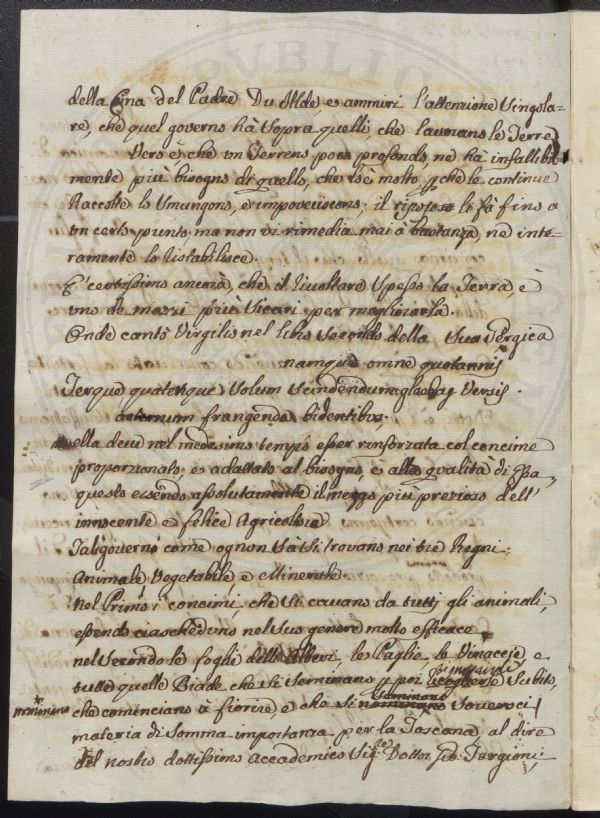 della Cina del Padre Du Alde, e ammiri l'attenzione Singola=
re, che quel governo hà sopra quelli, che lavorano le Terre
Vero è, che un Terreno poco profondo, ne hà infallibil
mente più bisogno di quello, che lo è molto pche le continue
Raccolte lo smungono, e impoveriscono; il riposo le fà fino a
un certo punto ma non vi rimedia mai a bastanza, ne inte=
ramente lo ristabilisce.
E' certissimo ancorà, che il rivoltare spesso la Terra, è
uno de mezzi più sicuri per megliorarla.
Onde cantò Virgilio nel libro secondo della sua Georgica
namque omne quotannis
Terque quaterque solum scindendum glaebaq versis.
aeternum frangenda bidentibus,
ella deve nel medesimo tempo esser rinforzata col concime
proporzionato, e adattato al bisogno, e alla qualità di essa,
questo essendo assolutamente il mezzo più prezioso dell'
innocente e felice Agricoltura
Tali governi come ognun sà si trovano nei tre Regni:
Animale Vegetabile, e Minerale.
Nel Primo i concimi, che si cavano da tutti gli animali,
essendo ciascheduno nel suo genere molto efficace
nel secondo le foglie delli Alberi, le Paglie, le Vinacce, e
tutte quelle Biade che si seminano p poi subito,
che cominciano a fiorire, e che si nominano Sovesci
materia di somma importanza per la Toscana, al dire
del nostro dottissimo Accademico Sig.re Dottor Gio: Targioni;